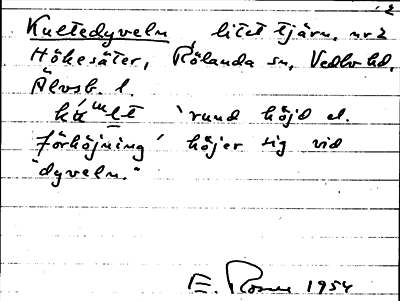 2
Kultedyveln, litet tjärn, nr 2
Hökesäter, Rölanda sn, Vedbo hd,
Älvsb. l.
"kult 'rund höjd el.
förhöjning' höjer sig vid
"dyveln."
E. Rosen 1954